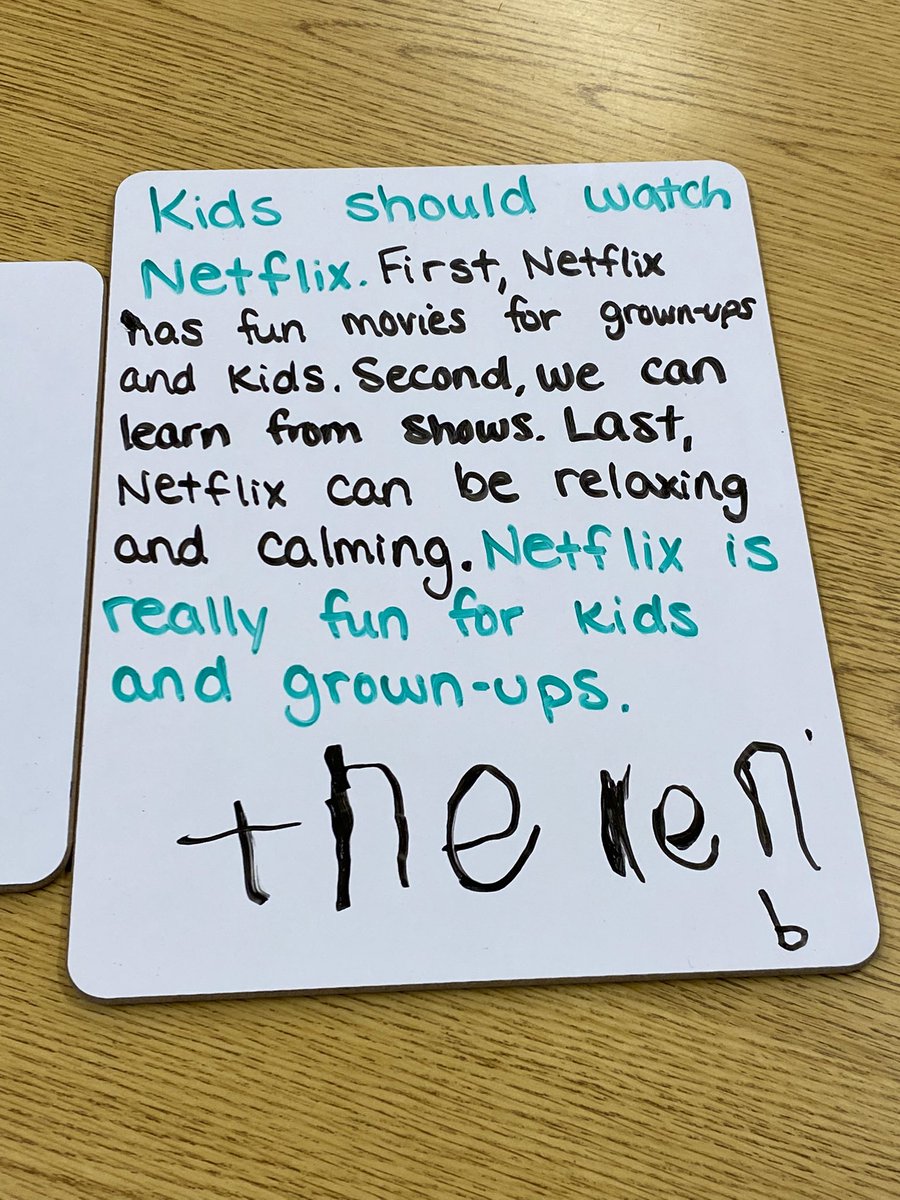 Kids should watch
Netflix. First, Netflix
has fun movies for grown-ups
and kids. Second, we can
learn from shows. Last,
Netflix can be relaxing
and calming. Netflix is
really fun for kids
and grown-ups.
the